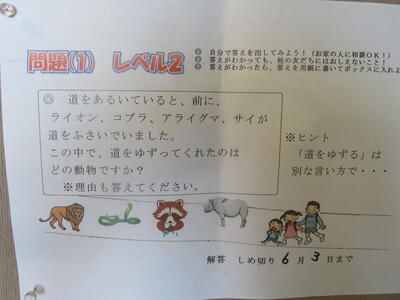 問題(1) レベル2
自分で答えを出してみよう！（お家の人に相談OK！）
答えがわかっても、他の友だちにはおしえないこと！
答えがわかったら、答えを用紙に書いてボックスに入れよ
◎ 道をあるいていると、前に、
ライオン、コブラ、アライグマ、サイが
道をふさいでいました。
この中で、道をゆずってくれたのは
どの動物ですか？
※理由も答えてください。
※ヒント
「道をゆずる」は
別な言い方で・・・
解答 しめ切り 6 月 3 日まで